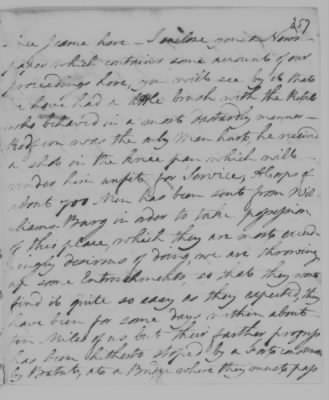 257
since I came here - I inclose you a News
paper which contains some account of our
proceedings here, you will see by it that
we have had a little brush with the Rebels
who behaved in a most dastardly manner -
was the only Man hurt, he received
a shot in the knee pan which will
render him unfit for Service, A Corps of
about 900 Men has been sent from Wil
liams Burg in order to take possession
of this place, which they are most exceed
ingly desirous of doing, we are throwing
up some Entrenchments, so that they wont
find it quite so easy as they expected, they
have been for some days within about
ten Miles of us but their farther progress
has been hitherto stoped by a Fort
by Batut, at a Bridge where they must pass